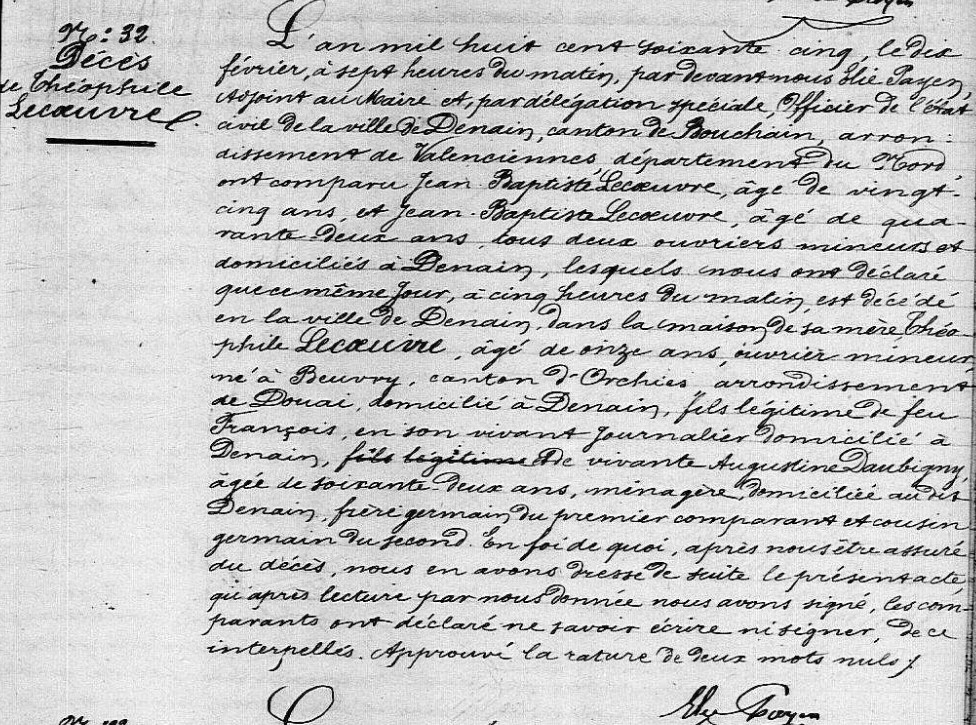 N.º 32.
Décès
de Théophile
Lecœuvre.
L'an mil huit cent soixante cinq, le dix
février, à sept heures du matin, par devant nous Elie Payen,
Adjoint au Maire et, par délégation spéciale, Officier de l'État
civil de la ville de Denain, canton de Bouchain, arron-
dissement de Valenciennes département du Nord,
ont comparu Jean Baptiste Lecœuvre, âgé de vingt-
cinq ans, et Jean-Baptiste Lecœuvre, âgé de qua-
rante-deux ans, tous deux ouvriers mineurs et
domiciliés à Denain, lesquels nous ont déclaré
que ce même jour, à cinq heures du matin, est décédé
en la ville de Denain, dans la maison de sa mère, Théo-
phile Lecœuvre, âgé de onze ans, ouvrier mineur
né à Beuvry, canton d'Orchies, arrondissement
de Douai, domicilié à Denain, fils légitime de feu
François, en son vivant journalier domicilié à
Denain, fils légitime et de vivante Augustine Daubigny,
âgée de soixante deux ans, ménagère, domiciliée au dit
Denain, frère germain du premier comparant et cousin
germain du second. En foi de quoi, après nous être assuré
du décès, nous en avons dressé de suite le présent acte,
qu'après lecture par nous donnée nous avons signé, les com-
parants ont déclaré ne savoir écrire ni signer, de ce
interpellés. Approuvé la rature de deux mots nuls /
Elie Payen